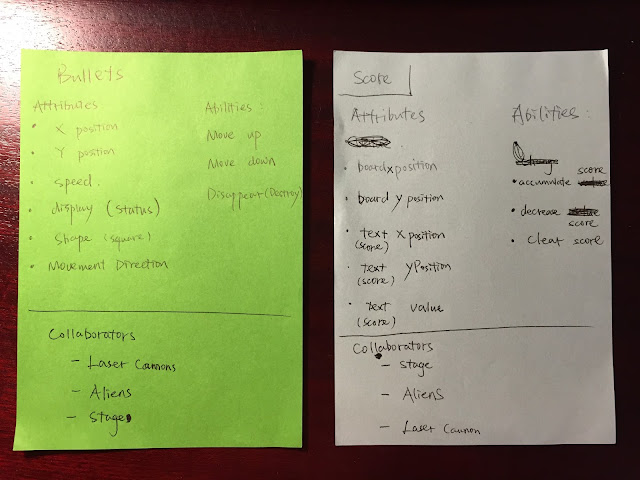 Bullets
Attributes
• X position
• Y position
• speed.
• display (status)
• shape (square)
• Movement Direction
Abilities :
Move up
Move down
Disappear (Destroy)
Collaborators
– Laser Cannons
– Aliens
– Stage
Score
Attributes
• board x position
• board y position
• text x position
(score)
• text y Position
(score)
• text value
(score)
Abilities :
• accumulate score
• decrease score
• clear score
Collaborators
– Stage
– Aliens
– Laser Cannon